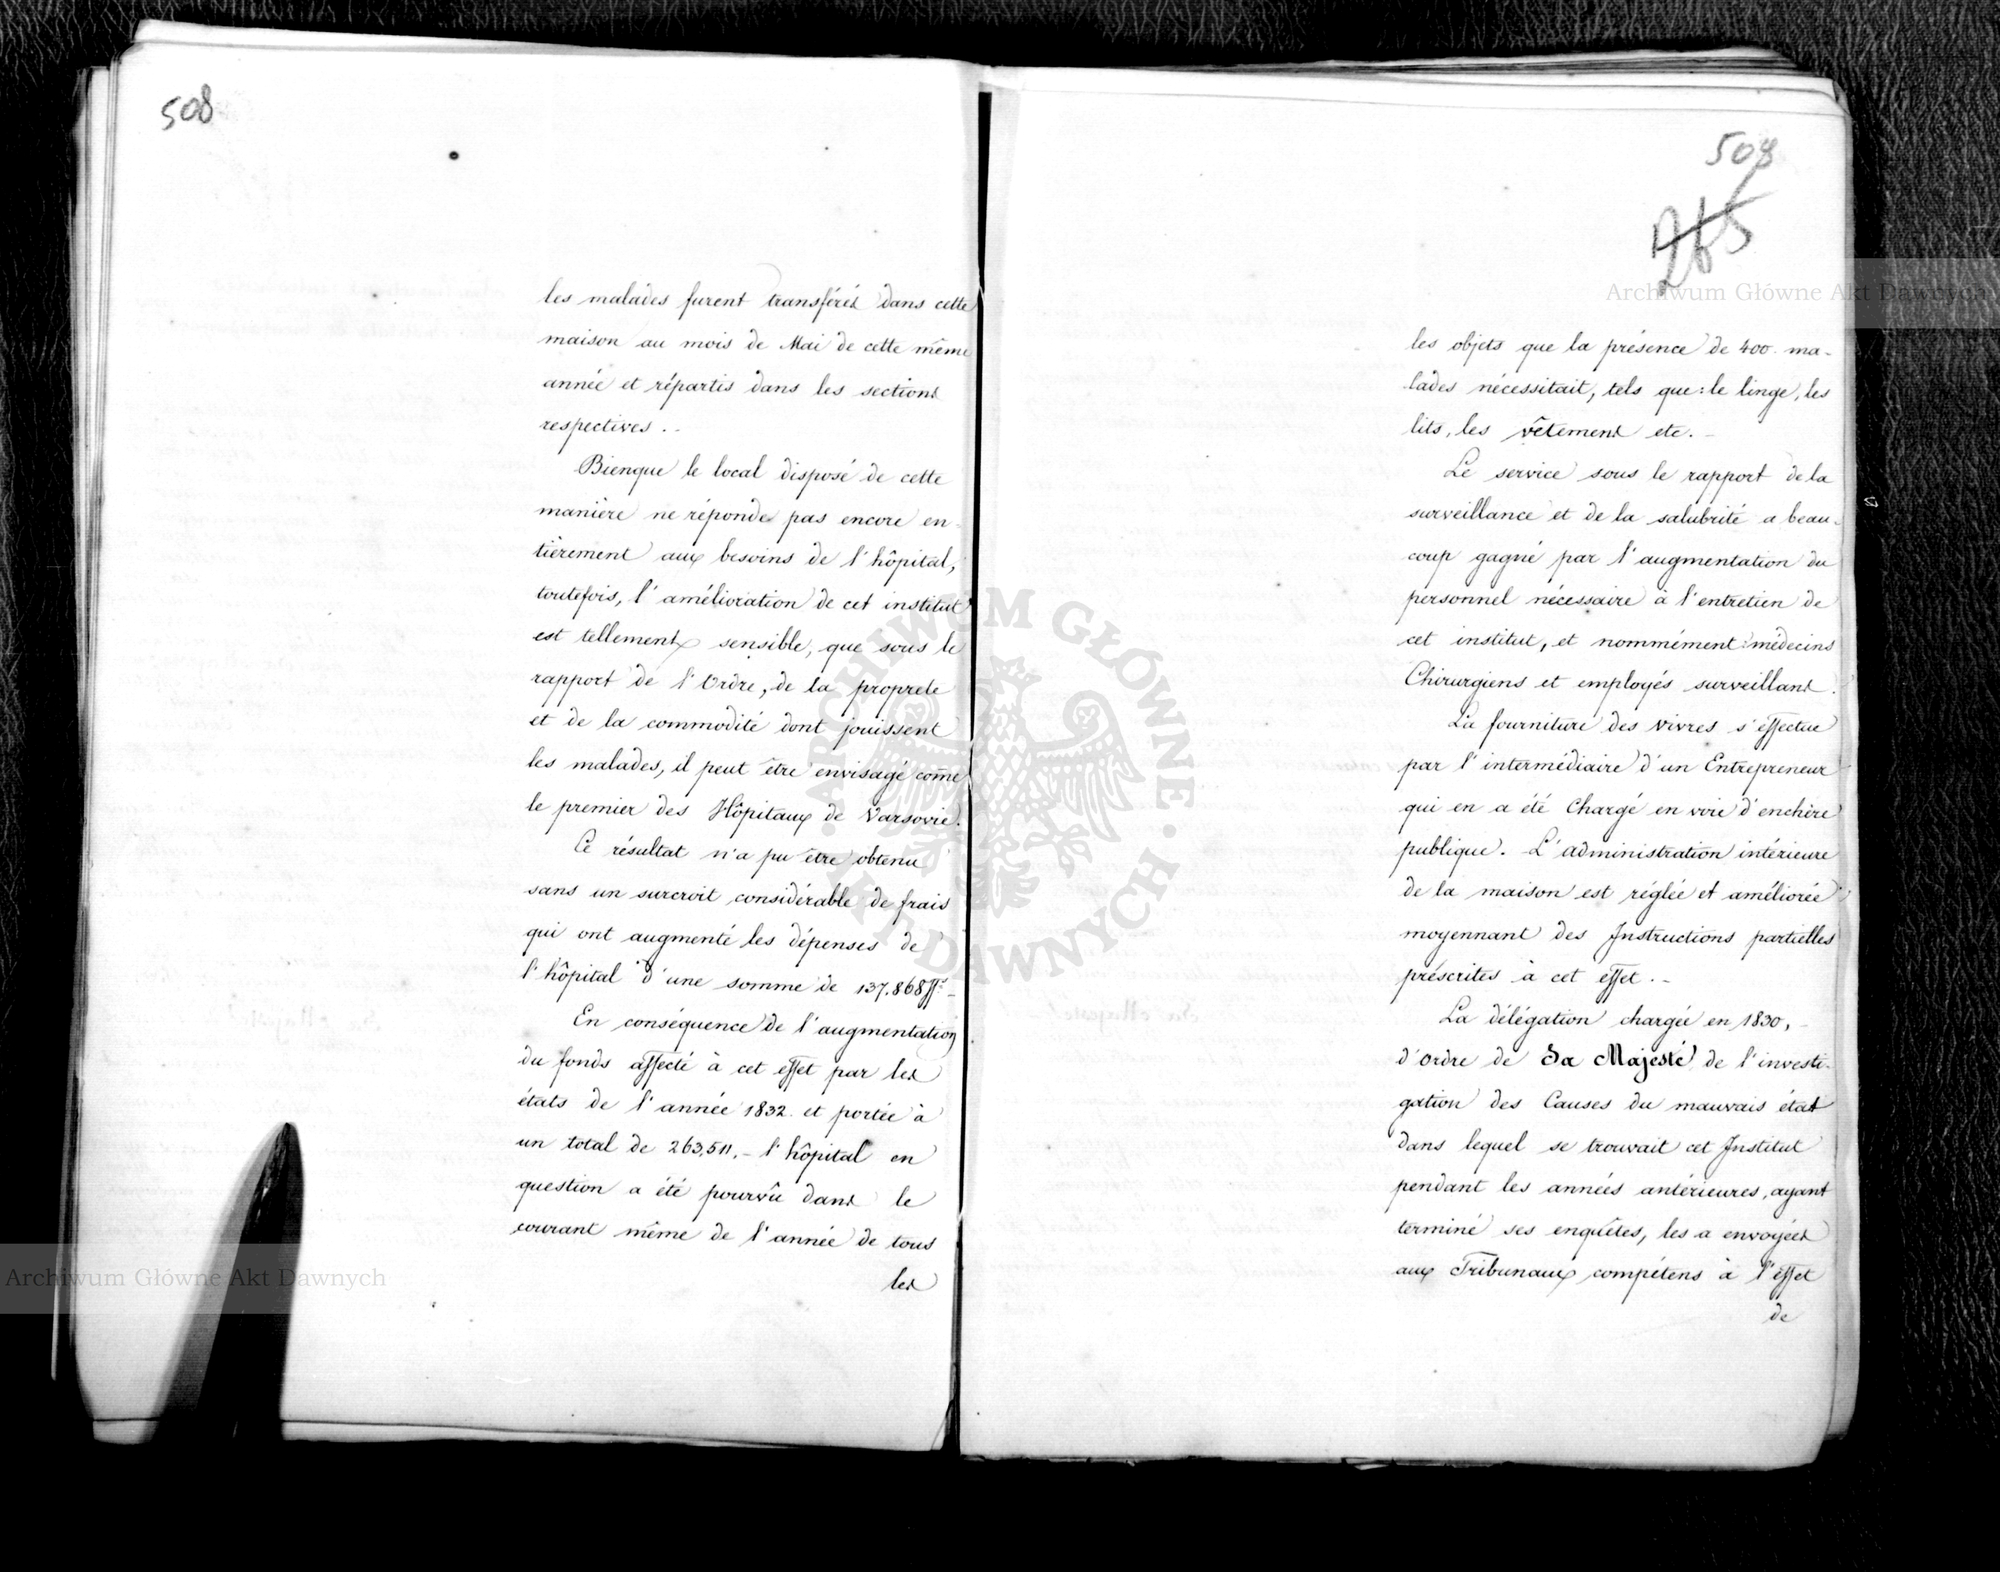 508
les malades furent transférés dans cette
maison au mois de Mai de cette même
année et répartis dans les sections
respectives . _
Bienque le local disposé de cette
manière ne réponde pas encore en-
tièrement aux besoins de l'hôpital,
toutefois, l'amélioration de cet institut
est tellement sensible, que sous le
rapport de l'Ordre, de la propreté
et de la commodité dont jouissent
les malades, il peut être envisagé come
le premier des Hôpitaux de Varsovie.
Ce résultat n'a pu être obtenu
sans un surcroit considérable de frais
qui ont augmenté les dépenses de
l'hôpital d'une somme de 137.868 ff. _
En conséquence de l'augmentation
du fonds affecté à cet effet par les
états de l'année 1832. et portée à
un total de 263,511. _ l'hôpital en
question a été pourvû dans le
courant même de l'année de tous
les
508
265
les objets que la présence de 400. ma-
lades nécessitait, tels que: le linge, les
lits, les vêtemens etc. _
Le service sous le rapport de la
surveillance et de la salubrité a beau-
coup gagné par l'augmentation du
personnel nécessaire à l'entretien de
cet institut, et nommément: médecins
Chirurgiens et employés surveillans.
La fourniture des vivres s'effectue
par l'intermédiaire d'un Entrepreneur
qui en a été Chargé en voie d'enchère
publique. L'administration intérieure
de la maison est réglée et améliorée
moyennant des Instructions partielles
préscrites à cet effet . _
La délégation chargée en 1830, _
d'Ordre de Sa Majesté de l'investi-
gation des Causes du mauvais état
dans lequel se trouvait cet Institut
pendant les années antérieures, ayant
terminé ses enquêtes, les a envoyées
aux Tribunaux compétens à l'effet
de
Archiwum Główne Akt Dawnych
Archiwum Główne Akt Dawnych
ARCHIWUM GŁÓWNE AKT DAWNYCH